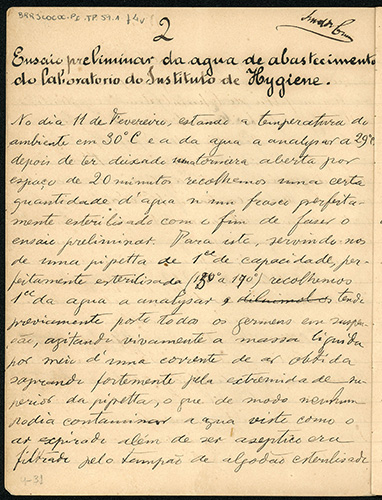 BRRJCOCOC-PE-TP-59.1 f4v
2
Ensaio preliminar da agua de abastecimento
do laboratorio do Instituto de Hygiene.
No dia 11 de Fevereiro, estando a temperatura do
ambiente em 30°C e a da agua a analysar a 29°C
depois de ter deixado uma torneira aberta por
espaço de 20 minutos recolhemos uma certa
quantidade d'agua n'um frasco perfeita-
mente esterilisado com o fim de fazer o
ensaio preliminar. Para isto, servindo-nos
de uma pipetta de 1cc de capacidade, per-
feitamente esterilisada (150° a 170°) recolhemos
1cc da agua a analysar e diluimol-os tendo
previamente posto todos os germens em suspen-
são, agitando vivamente a massa liquida
por meio d'uma corrente de ar obtida
soprando fortemente pela extremidade su-
perior da pipetta, o que de modo nenhum
podia contaminar a agua visto como o
ar expirado além de ser aseptico era
filtrado pelo tampão de algodão esterilisado